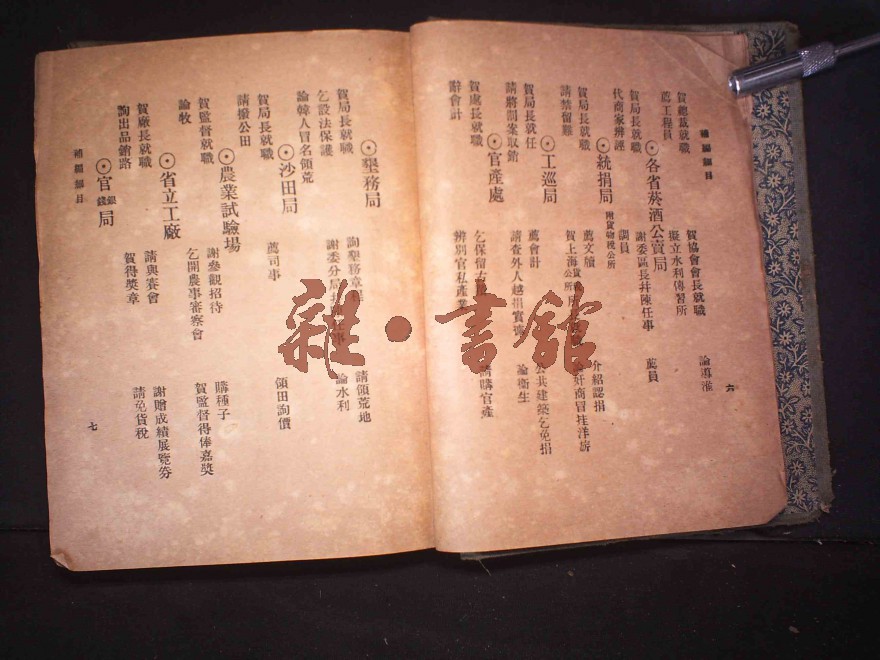 補編細目
賀總裁就職
賀協會會長就職
論導淮
薦工程員
擬立水利傳習所
⊙各省菸酒公賣局
代商家辨誣
謝委區長并陳任事
薦員
賀局長就職
調員
⊙統捐局
附貨物稅公所
請禁留難
薦文牘
介紹認捐
賀局長就職
賀上海貨
奸商冒挂洋旂
⊙工巡局
賀局長就任
薦會計
論衛生
請將罰案取銷
請查外人越捐實
公共建築乞免捐
⊙官產處
賀處長就職
乞保留古
請購官產
辭會計
辨別官私產業
六
⊙墾務局
賀局長就職
詢墾務章程
請領荒地
乞設法保護
謝委分局
任事
論水利
論韓人冒名領荒
⊙沙田局
賀局長就職
薦司事
領田詢價
請撥公田
⊙農業試驗場
賀監督就職
謝參觀招待
購種子
論牧
乞開農事審察會
賀監督得俸嘉獎
⊙省立工廠
賀廠長就職
請與賽會
謝贈成績展覽券
詢出品銷路
賀得獎章
請免貨稅
⊙官銀錢局
補編細目
七
雜·書館